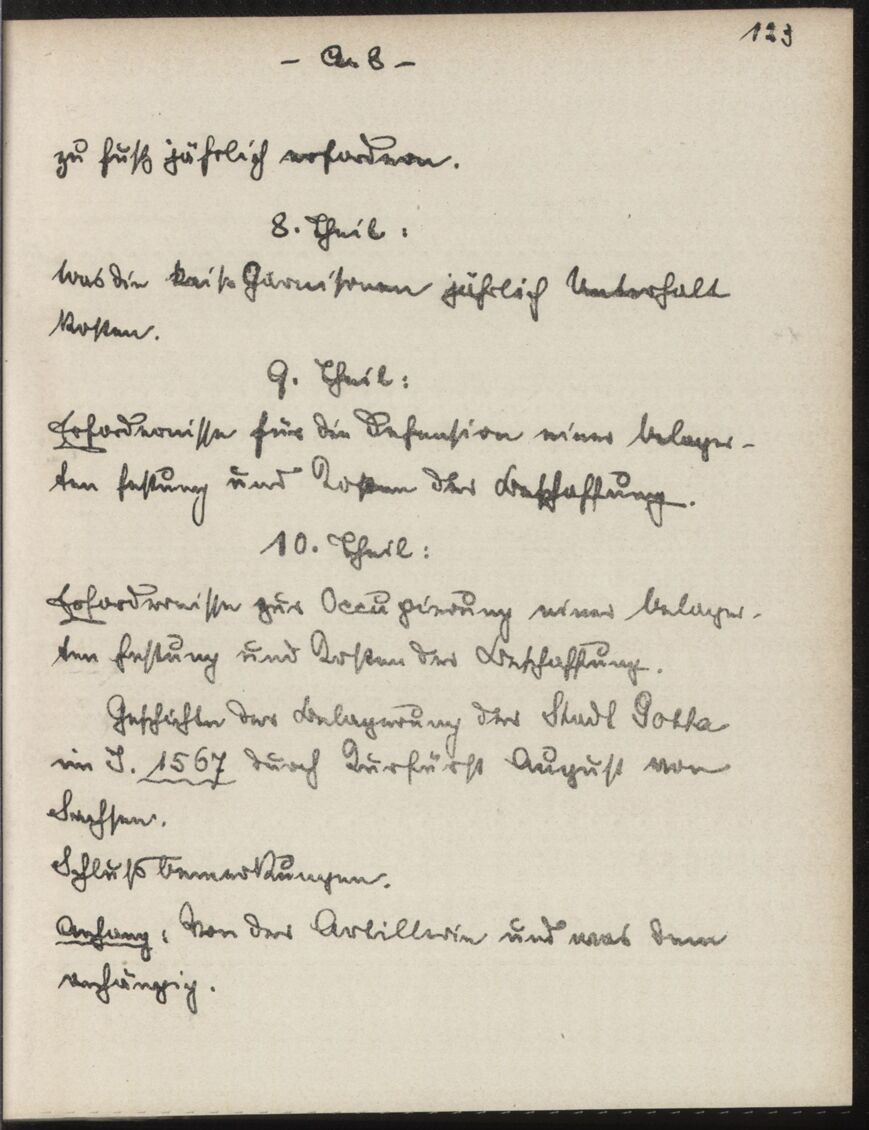 123
- An 8 -
zu fuß jährlich erfordern.
8. Theil:
was die kais. Garnisonen jährlich Unterhalt
kosten.
9. Theil:
Erfordernisse für die Defension einer belager-
ten Festung und Kosten der Beschaffung.
10. Theil:
Erfordernisse zur Occupierung einer belager-
ten Festung und Kosten der Beschaffung.
Geschichte der Belagerung der Stadt Gotta
im J. 1567 durch Kurfürst August von
Sachsen.
Schlußbemerkungen.
Anhang: Von der Artillerie und was dem
anhängig.